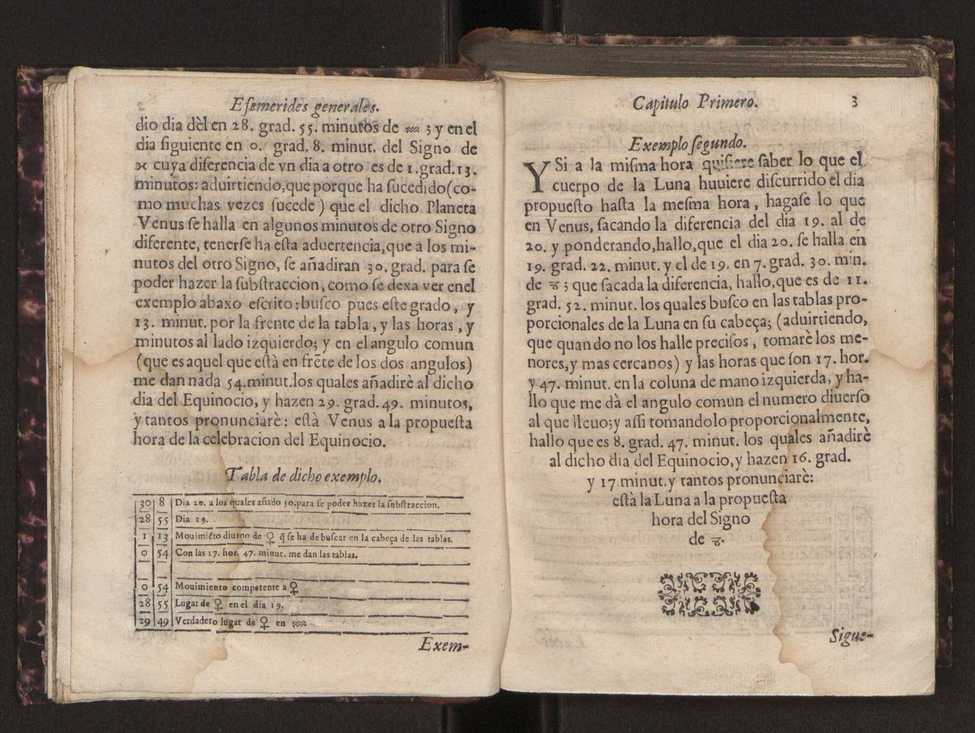 2
Efemerides generales.
dio dia dèl en 28. grad. 55. minutos de ♒ 3 y en el
dia ſiguiente en 0. grad. 8. minut. del Signo de
♓ cuya diferencia de vn dia a otro es de 1. grad. 13.
minutos: aduirtiendo, que porque ha ſucedido (co-
mo muchas vezes ſucede) que el dicho Planeta
Venus ſe halla en algunos minutos de otro Signo
diferente, tenerſe ha eſta aduertencia, que a los mi-
nutos del otro Signo, ſe añadiran 30. grad. para ſe
poder hazer la ſubſtraccion, como ſe dexa ver en el
exemplo abaxo eſcrito: buſco pues eſte grado, y
13. minut. por la frente de la tabla, y las horas, y
minutos al lado izquierdo; y en el angulo comun
(que es aquel que eſtà en frẽte de los dos angulos)
me dan nada 54. minut. los quales añadirè al dicho
dia del Equinocio, y hazen 29. grad. 49. minutos,
y tantos pronunciarè: eſtà Venus a la propueſta
hora de la celebracion del Equinocio.
Tabla de dicho exemplo.
30 8 Dia 20. a los quales añado 30. para ſe poder hazer la ſubſtraccion.
28 55 Dia 19.
1 13 Mouimiẽto diurno de ♀ q̃ ſe ha de buſcar en la cabeça de las tablas.
0 54 Con las 17. hor. 47. minut. me dan las tablas.
0 54 Mouimiento competente a ♀
28 55 Lugar de ♀ en el dia 19.
29 49 Verdadero lugar de ♀ en ♒
Exem-
Capitulo Primero. 3
Exemplo ſegundo.
Y Si a la miſma hora quiſiere ſaber lo que el
cuerpo de la Luna huuiere diſcurrido el dia
propueſto haſta la meſma hora, hagaſe lo que
en Venus, ſacando la diferencia del dia 19. al de
20. y ponderando, hallo, que el dia 20. ſe halla en
19. grad. 22. minut. y el de 19. en 7. grad. 30. min.
de ♉; que ſacada la diferencia, hallo, que es de 11.
grad. 52. minut. los quales buſco en las tablas pro-
porcionales de la Luna en ſu cabeça; (aduirtiendo,
que quando no los halle preciſos, tomarè los me-
nores, y mas cercanos) y las horas que ſon 17. hor.
y 47. minut. en la coluna de mano izquierda, y ha-
llo que me dà el angulo comun el numero diuerſo
al que lleuo; y aſſi tomandolo proporcionalmente,
hallo que es 8. grad. 47. minut. los quales añadirè
al dicho dia del Equinocio, y hazen 16. grad.
y 17 minut. y tantos pronunciarè:
eſtà la Luna a la propueſta
hora del Signo
de ♉.
Sigue-